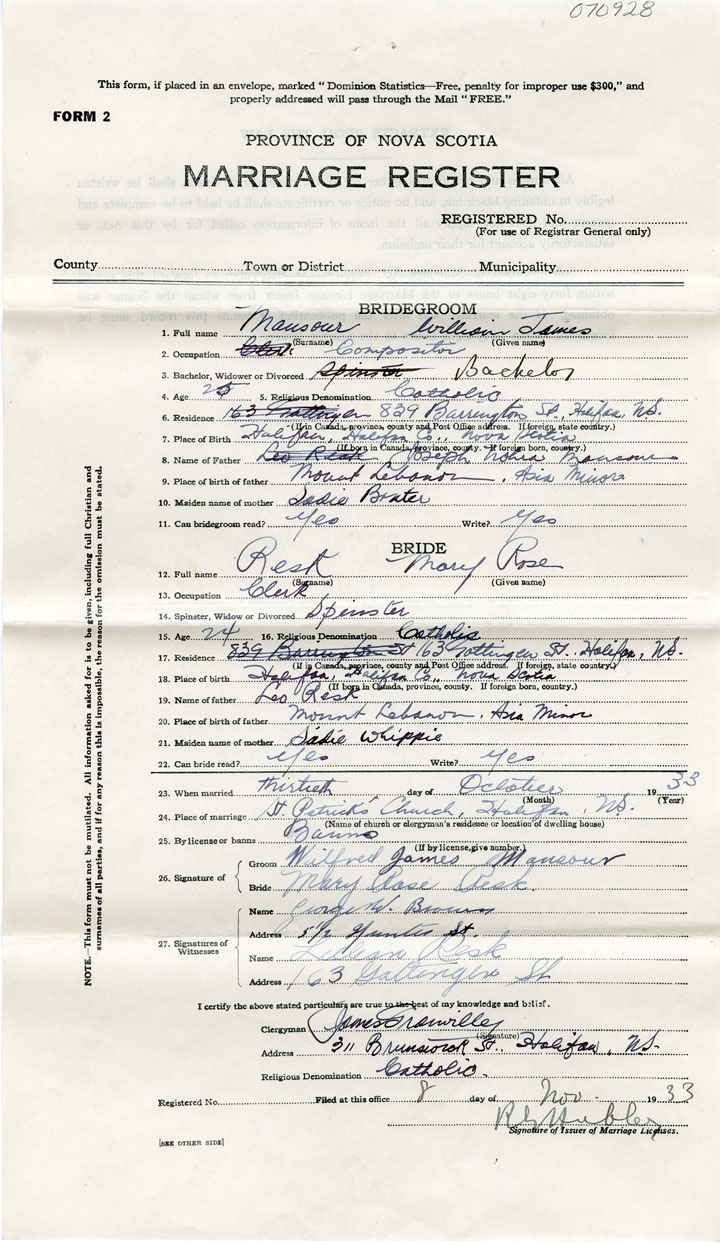 070928
This form, if placed in an envelope, marked "Dominion Statistics—Free, penalty for improper use $300," and
properly addressed will pass through the Mail "FREE."
FORM 2
PROVINCE OF NOVA SCOTIA
MARRIAGE REGISTER
REGISTERED No.
(For use of Registrar General only)
County Town or District Municipality
BRIDEGROOM
1. Full name Mansour William James
(Surname) (Given name)
2. Occupation Clerk Compositor
3. Bachelor, Widower or Divorced Spinster Bachelor
4. Age 25 5. Religious Denomination Catholic
6. Residence 163 Gottingen 839 Barrington St., Halifax, N.S.
(If in Canada, province, county and Post Office address. If foreign, state country.)
7. Place of Birth Halifax, Halifax Co., Nova Scotia
(If born in Canada, province, county. If foreign born, country.)
8. Name of Father Leo Resk Joseph Mansour
9. Place of birth of father Mount Lebanon, Asia Minor
10. Maiden name of mother Sadie
11. Can bridegroom read? Yes Write? Yes
BRIDE
12. Full name Resk Mary Rose
(Surname) (Given name)
13. Occupation Clerk
14. Spinster, Widow or Divorced Spinster
15. Age 24 16. Religious Denomination Catholic
17. Residence 839 Barrington St 163 Gottingen St., Halifax, N.S.
(If in Canada, province, county and Post Office address. If foreign, state country.)
18. Place of birth Halifax, Halifax Co., Nova Scotia
(If born in Canada, province, county. If foreign born, country.)
19. Name of father Leo Resk
20. Place of birth of father Mount Lebanon, Asia Minor
21. Maiden name of mother Sadie Whippie
22. Can bride read? Yes Write? Yes
23. When married thirtieth day of October 1933
(Month) (Year)
24. Place of marriage St. Patrick's Church, Halifax, N.S.
(Name of church or clergyman's residence or location of dwelling house)
25. By license or banns Banns
(If by license, give number.)
26. Signature of
Groom Wilfred James Mansour
Bride Mary Rose Resk
27. Signatures of Witnesses
Name George W. Brown
Address St.
Name Resk
Address 163 Gottengen St
I certify the above stated particulars are true to the best of my knowledge and belief.
Clergyman James Granville
(Signature)
Address 311 Brunswick St. Halifax, N.S.
Religious Denomination Catholic.
Registered No. Filed at this office 8 day of Nov - 1933
Signature of Issuer of Marriage Licenses.
[SEE OTHER SIDE]
NOTE.—This form must not be mutilated. All information asked for is to be given, including full Christian and
surnames of all parties, and if for any reason this is impossible, the reason for the omission must be stated.